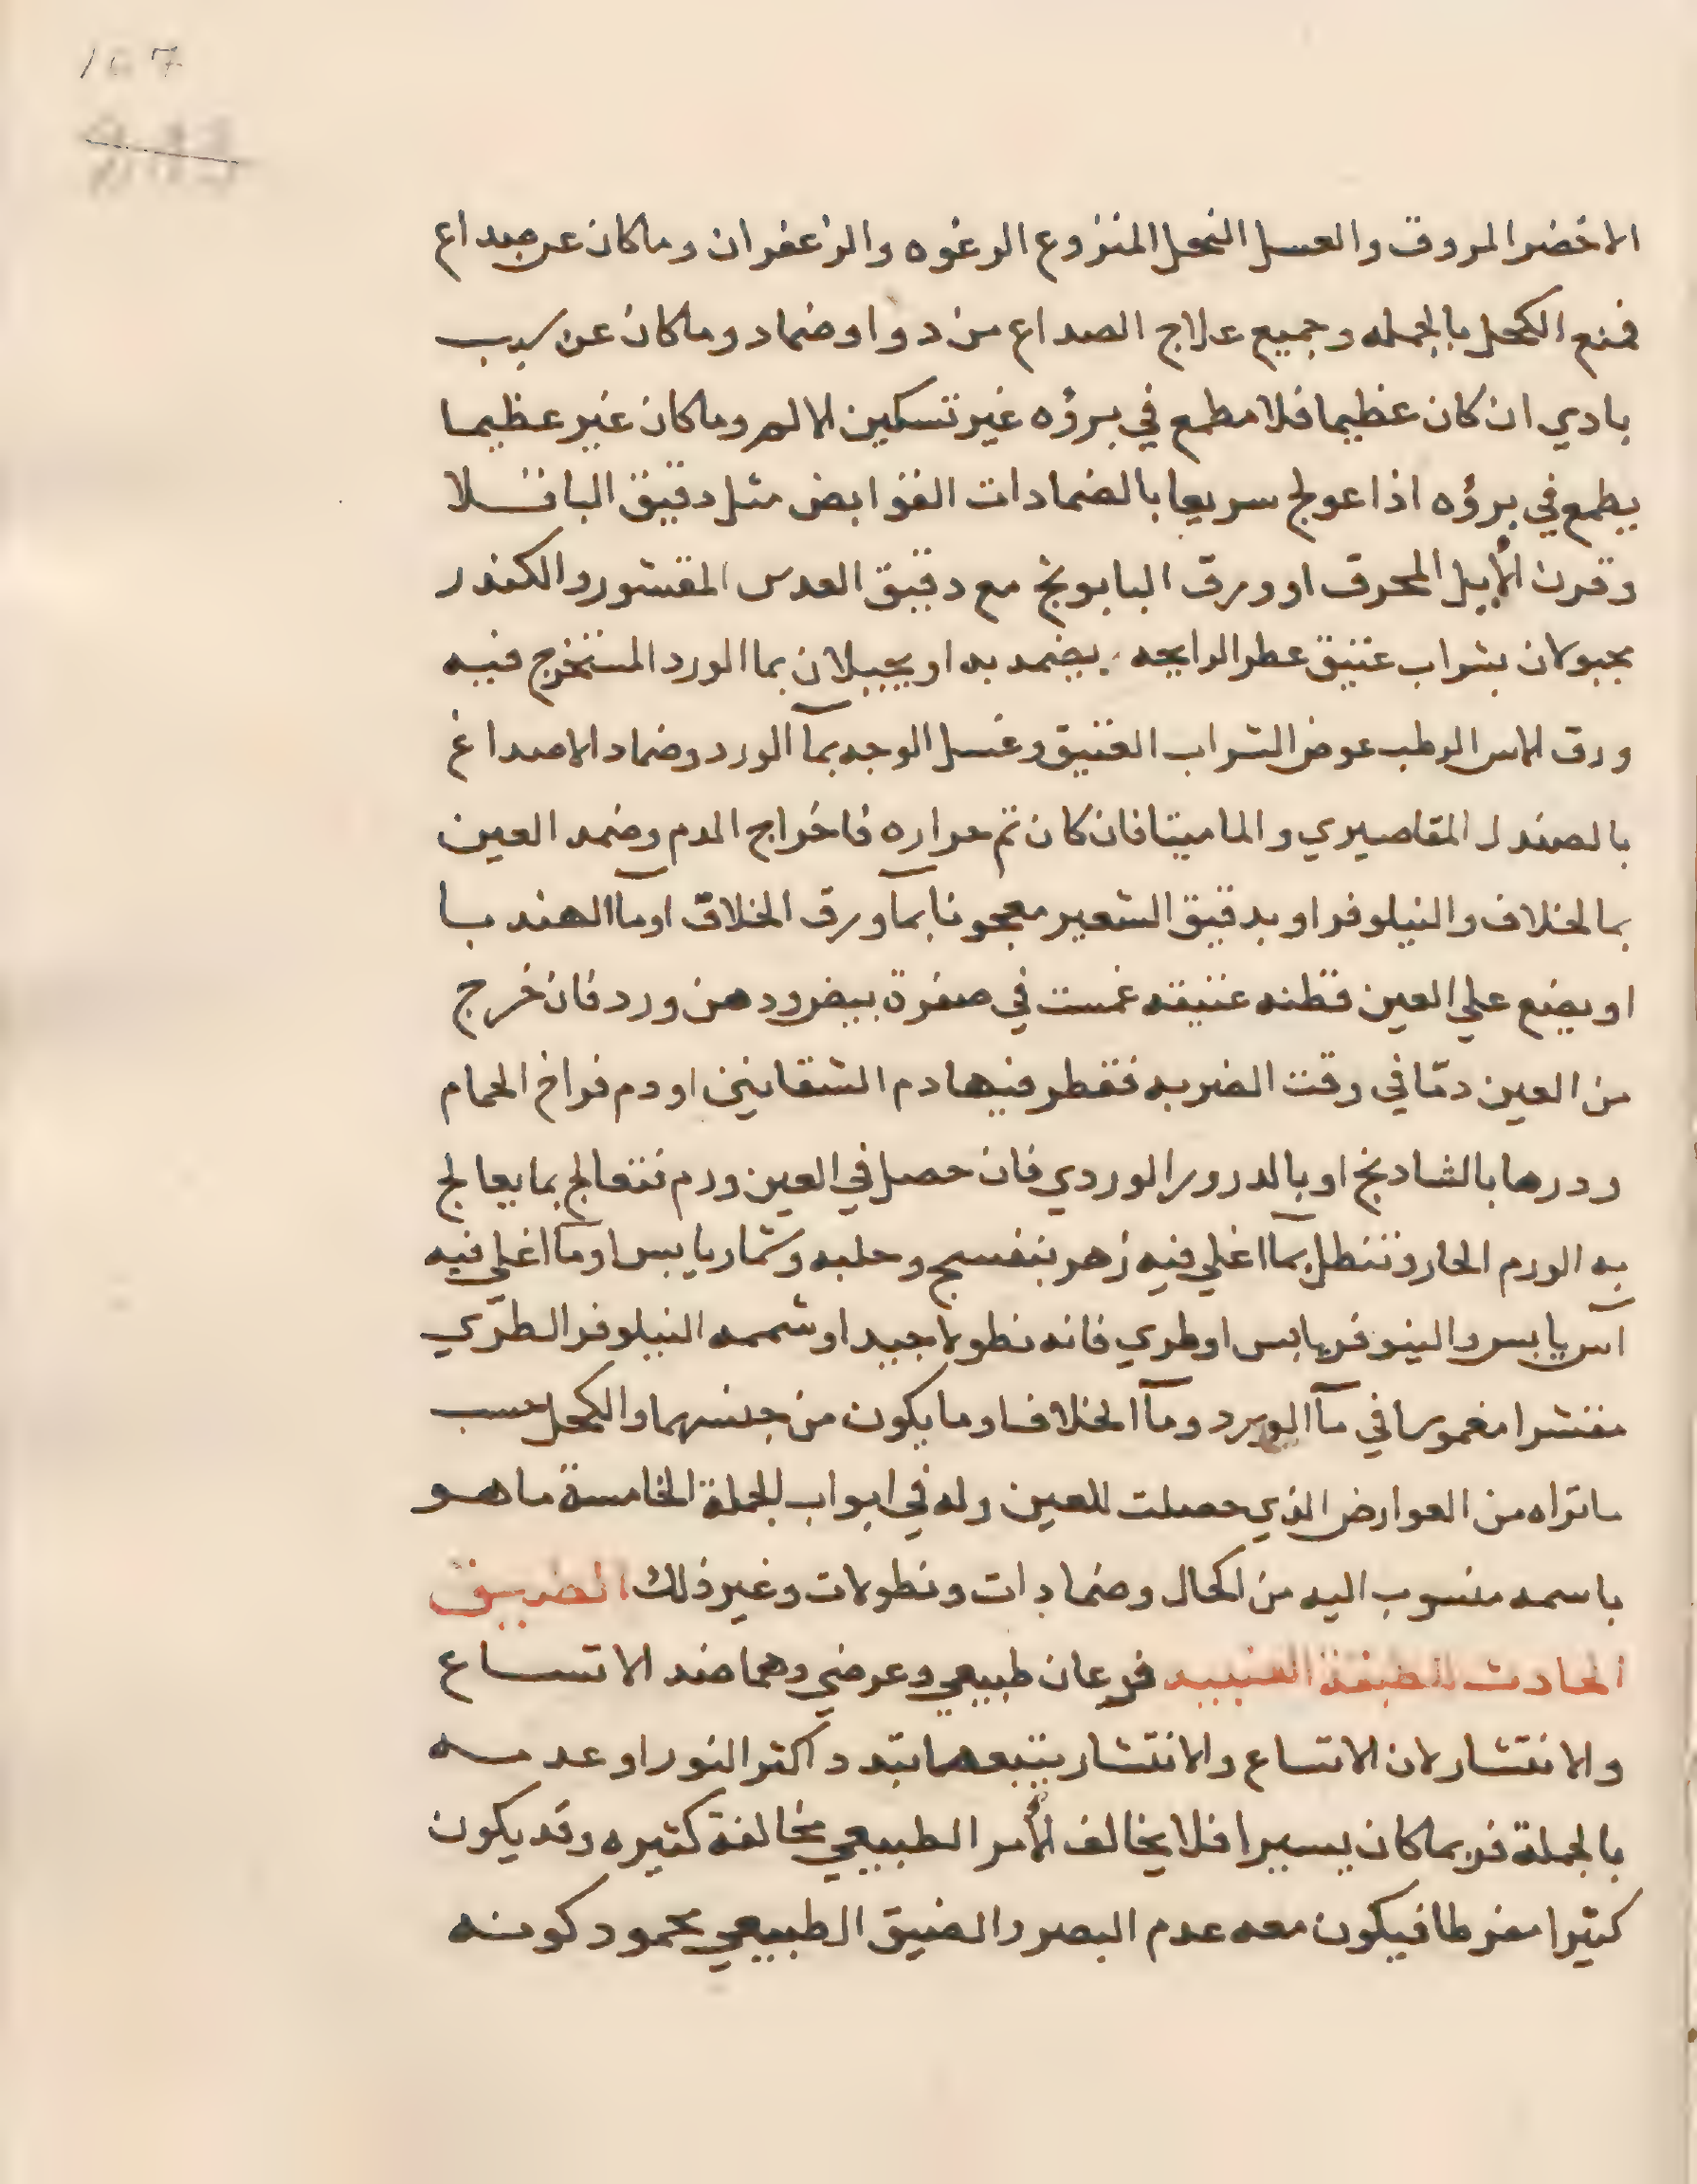 107
الاخضر المروق والعسل النحل المنزوع الرغوه والزعفران وماكان عن صداع
فمنع الكحل بالجمله وجميع علاج الصداع من دوا وضماد وماكان عن سبب
بادي ان كان عظيما فلا مطمع في برؤه غير تسكين الالم وماكان غير عظيما
يطمع في برؤه اذا عولج سريعا بالضمادات القوابض مثل دقيق الباقلا
وقرن الأيل المحرق او ورق البابونج مع دقيق العدس المقشور والكندر
مجبولان بشراب عتيق عطر الرايحه يضمد به او يجبلان بما الورد المستخرج فيه
ورق الاس الرطب عوض الشراب العتيق وغسل الوجه بمآ الورد وضماد الاصداغ
بالصندل المقاصيري والماميتا فان كان ثم حراره فاخراج الدم وضمد العين
بالخلاف والنيلوفر او بدقيق الشعير معجونا بمآ ورق الخلاف او مآ الهندبا
او يضع علي العين قطنه عتيقه غمست في صفرة بيض ودهن ورد فان خرج
من العين دمّا في وقت الضربه فقطر فيها دم الشفانين او دم فراخ الحمام
ودرها بالشادنج او بالدرور الوردي فان حصل في العين ورم فتعالج بما يعالج
به الورم الحار وتنطل بمآ اغلي فيه زهر بنفسج وحلبه وشمار يابس او مآ اغلي فيه
آس يابس والينوفر يابس او طري فانه نطولا جيد او شممه النيلوفر الطّري
مفتشرا مغموسا في مآ الورد ومآ الخلاف او ما يكون من جنسهما والكحل حسب
ما تراه من العوارض الذي حصلت للعين وله في ابواب الجملة الخامسة ما هو
باسمه منسوب اليه من اكحال وضمادات ونطولات وغير ذلك الضيق
الحادث للطبقة العنبيه فرعان طبيعي وعرضي وهما ضد الاتساع
والانتشار لان الاتساع والانتشار يتبعهما تبدد اكثر النور او عدمه
بالجملة فربما كان يسيرا فلا يخالف الأمر الطبيعي مخالفة كثيره وقد يكون
كثيرا مفرطا فيكون معه عدم البصر والضيق الطبيعي محمود كونه